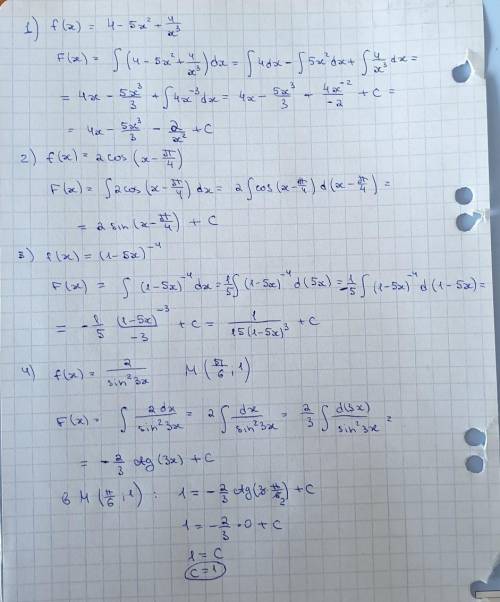 1) f(x) = 4 - 5x² + 4/x³
F(x) = ∫(4 - 5x² + 4/x³)dx = ∫4dx - ∫5x²dx + ∫4/x³ dx =
= 4x - 5x³/3 + ∫4x⁻³dx = 4x - 5x³/3 + 4x⁻²/-2 + C =
= 4x - 5x³/3 - 2/x² + C
2) f(x) = 2cos(x - π/4)
F(x) = ∫2cos(x - π/4)dx = 2∫cos(x - π/4)d(x - π/4) =
= 2sin(x - π/4) + C
3) f(x) = (1-5x)⁻⁴
F(x) = ∫(1-5x)⁻⁴dx = 1/5∫(1-5x)⁻⁴d(5x) = 1/-5∫(1-5x)⁻⁴d(1-5x) =
= -1/5 (1-5x)⁻³/-3 + C = 1/15(1-5x)³ + C
4) f(x) = 2/sin²3x M(π/6; 1)
F(x) = ∫2dx/sin²3x = 2∫dx/sin²3x = 2/3∫d(3x)/sin²3x =
= -2/3 ctg(3x) + C
в M(π/6; 1): 1 = -2/3 ctg(3·π/6₂) + C
1 = -2/3·0 + C
1 = C
C = 1